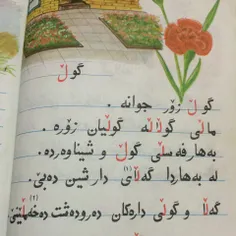 گوڵ
گوڵ زۆر جوانە .
ماڵی گوڵاڵە گوڵیان زۆرە .
بەهار فەسڵی گوڵ و شیناوەردە .
لە بەهاردا گەڵای (١) دار شین دەبێ .
گەڵا و گوڵی دارەکان دەرودەشت دەخەمڵێنێ